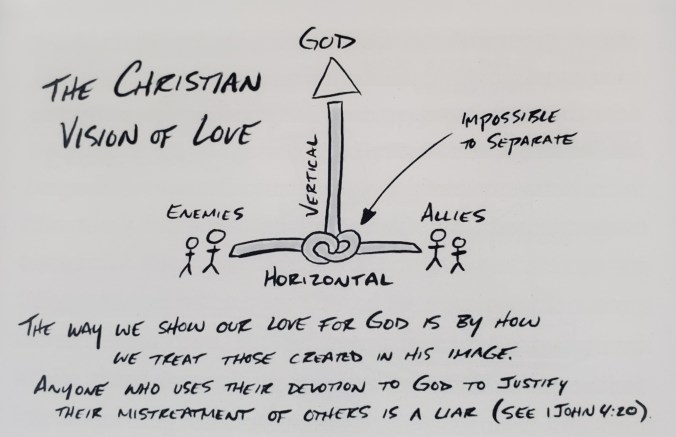 GOD
THE CHRISTIAN
VISION OF LOVE
IMPOSSIBLE
TO SEPARATE
VERTICAL
ENEMIES
ALLIES
HORIZONTAL
THE WAY WE SHOW OUR LOVE FOR GOD IS BY HOW
WE TREAT THOSE CREATED IN HIS IMAGE.
ANYONE WHO USES THEIR DEVOTION TO GOD TO JUSTIFY
THEIR MISTREATMENT OF OTHERS IS A LIAR (SEE 1 JOHN 4:20).